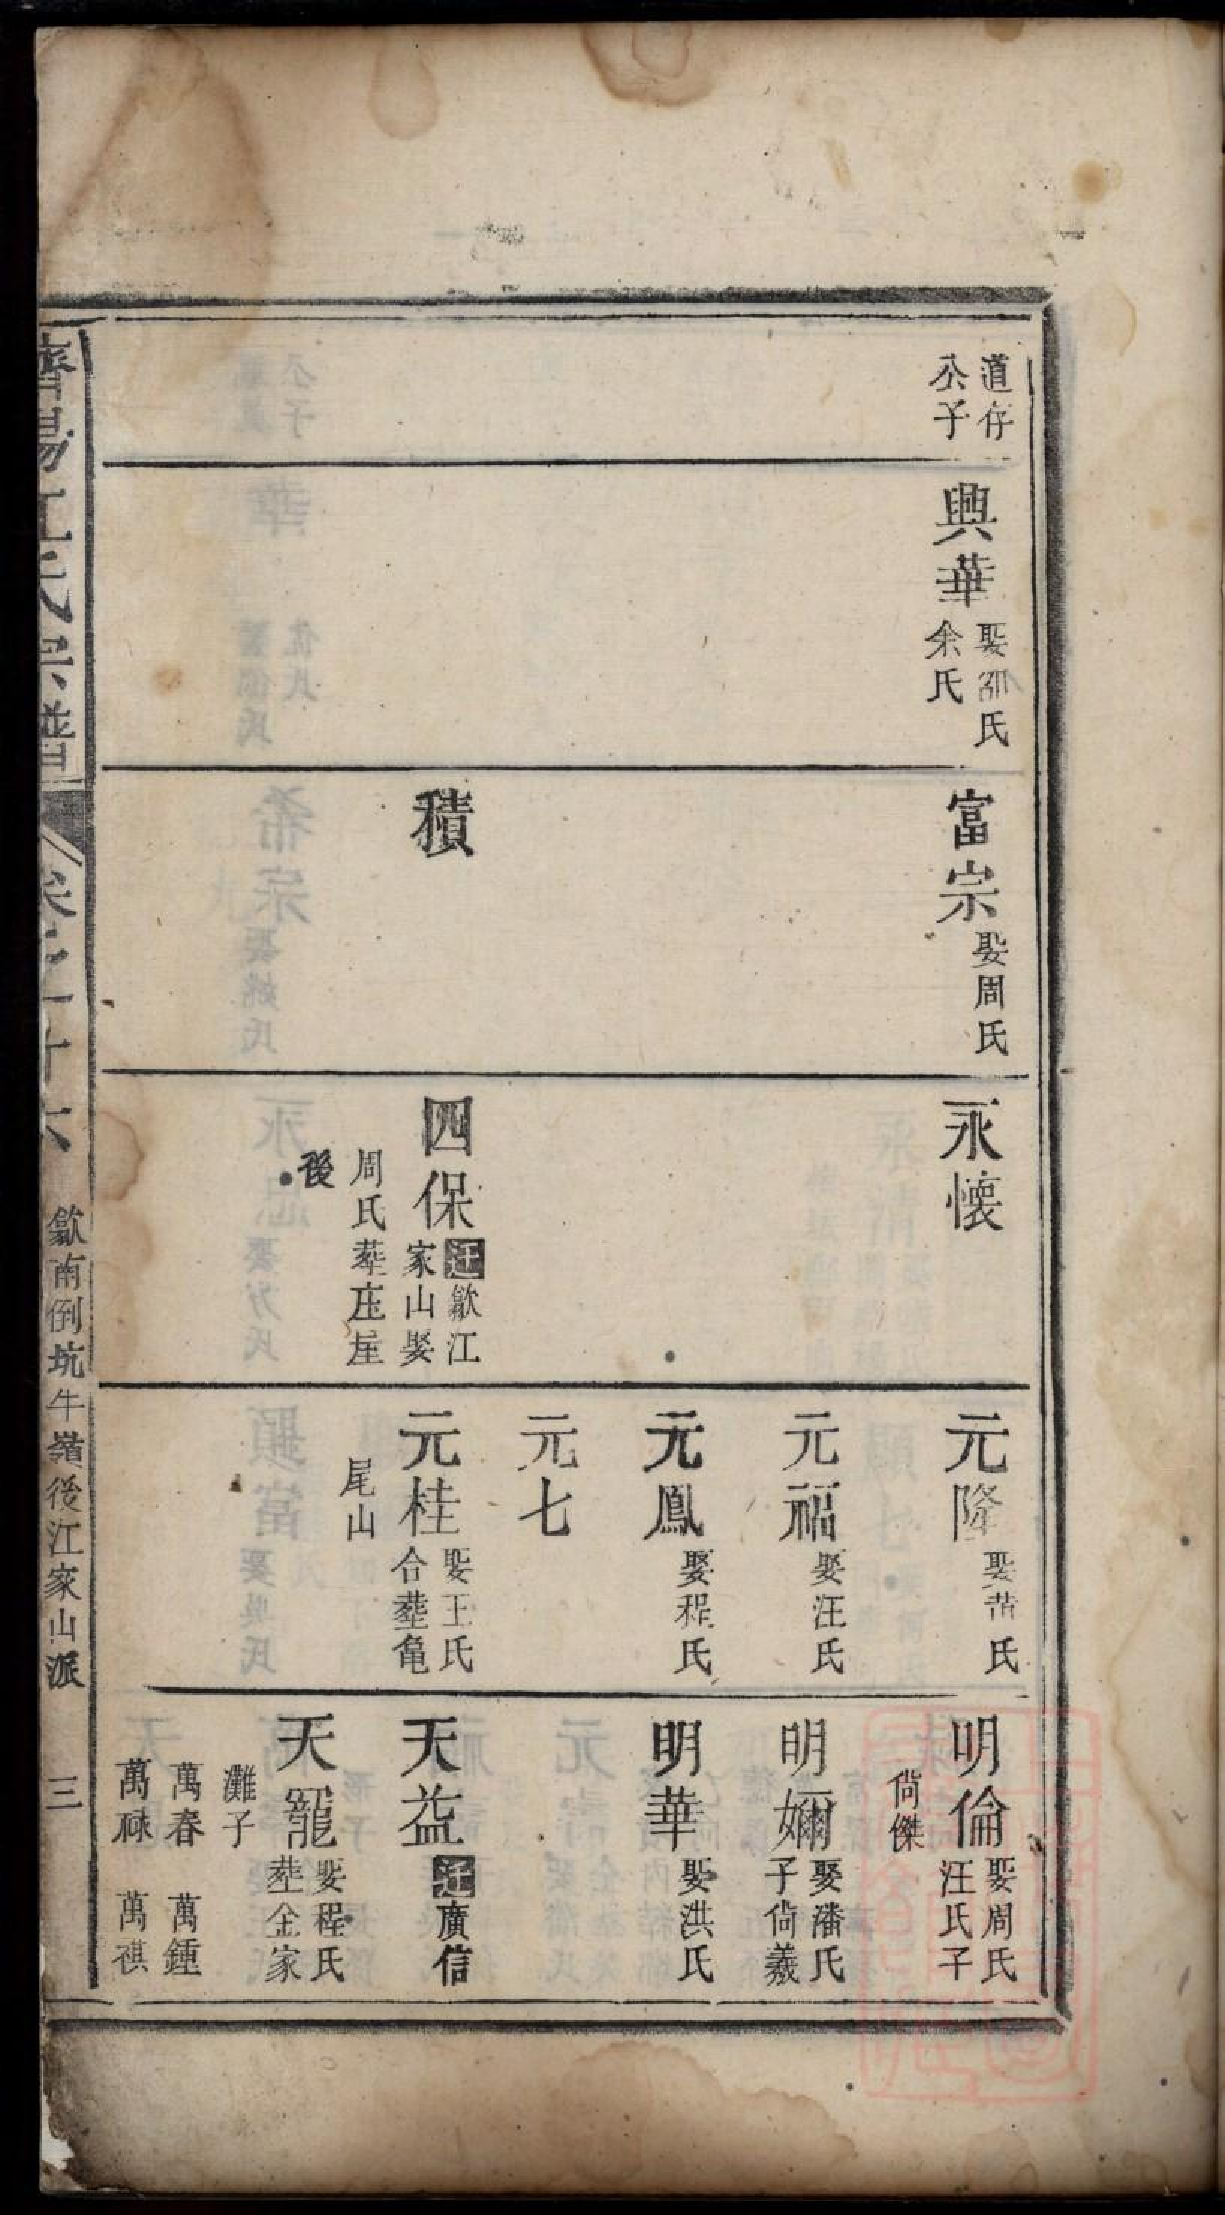 道存
公子
興華
娶邵氏
余氏
富宗
娶周氏
積
永懷
四保
遷歙江
家山娶
周氏葬庄屋
後
元隆
娶黄氏
元福
娶汪氏
元鳳
娶程氏
元七
元桂
娶王氏
合葬龟
尾山
明倫
娶周氏
汪氏子
尙傑
明嬭
娶潘氏
子尙義
明華
娶洪氏
天益
遷廣信
天寵
娶程氏
葬金家
灘子
萬春 萬鍾
萬祿 萬祺
濟陽江氏宗譜
卷之十六
歙南倒坑牛嶺後江家山派
三